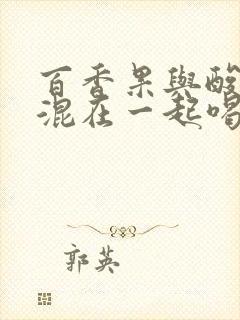 百香果與酸
混在一起喝
郭英